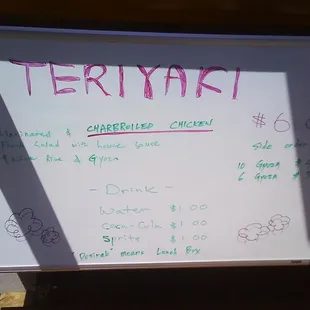 TERIYAKI
Marinated & CHARBROILED CHICKEN
$6
Salad with house sauce
side order
& Gyoza
10 Gyoza $
6 Gyoza $
- Drink -
Water $1.00
Coca-Cola $1.00
Sprite $1.00
means Lunch Box